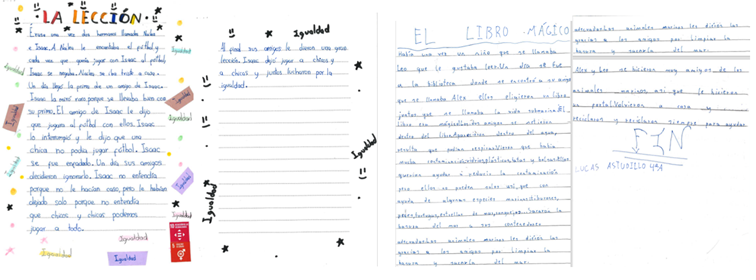 LA LECCIÓN
Érase una vez dos hermanos llamados Nales
e Isaac. A Nales le encantaba el fútbol y
cada vez que quería jugar con Isaac al fútbol
Isaac se negaba. Nales se iba triste a casa.
Un día llegó la prima de un amigo de Isaac.
Isaac la miró mal porque se llevaba bien con
su primo. El amigo de Isaac le dijo
que jugara al fútbol con ellos. Isaac
la interrumpió y le dijo que una
chica no podía jugar fútbol. Isaac
se fue enfadado. Un día sus amigos
decidieron ignorarlo. Isaac no entendía
porque no le hacían caso, pero le habían
dejado solo porque no entendía
que chicos y chicas podemos
jugar a todo.
Igualdad
Igualdad
Igualdad
Igualdad
Igualdad
Igualdad
Igualdad
Al final sus amigos le dieron una gran
lección. Isaac dejó jugar a chicas y
a chicos y juntos lucharon por la
igualdad.
Igualdad
Igualdad
Igualdad
EL LIBRO MÁGICO
Había una vez un niño que se llamaba
Leo que le gustaba leer. Un día se fue
a la biblioteca donde se encontró a un amigo
que se llamaba Alex ellos eligieron un libro
juntos que se llamaba la vida submarina. El
libro era mágico. Los dos amigos se metieron
dentro del libro. Aparecieron dentro del agua,
resulta que podían respirar. Vieron que había
mucha contaminación: plásticos, latas y botellas. Ellos
querían ayudar a reducir la contaminación
pero ellos no podían solos así, que con
ayuda de algunas especies marinas: tiburones,
peces, tortugas, estrellas de mar, cangrejos. Sacaron la
basura del mar a sus contenedores
adecuados. Los animales marinos les dieron las
gracias a los amigos por limpiar la
basura y sacarla del mar.
adecuados. Los animales marinos les dieron las
gracias a los amigos por limpiar la
basura y sacarla del mar.
Alex y Leo se hicieron muy amigos de los
animales marinos así que se hicieron
una postal. Volvieron a casa y
reciclaron y reciclaron siempre para ayudar.
FIN
LUCAS ASTUDILLO 4ºA